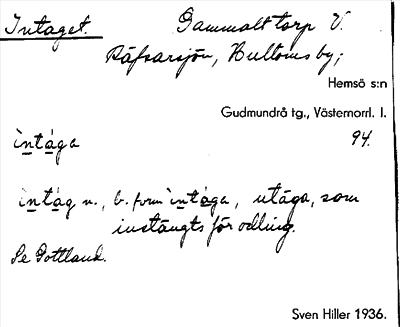 Intaget. Gammalt torp V.
Räfsarsjön, Bultomsby;
Hemsö s:n
Gudmundrå tg., Västernorrl. l.
ìntàga 94.
ìntàg n., b. form ìntàga, utäga, som
instängts för odling.
Se Gottland.
Sven Hiller 1936.